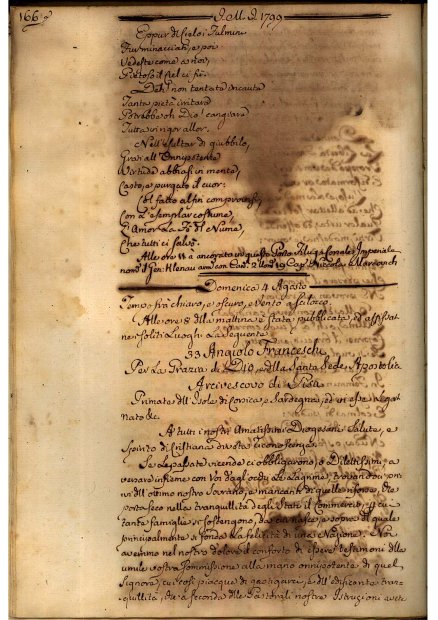 166
J.M.J. 1799
Eppur di sielo i Fulmini
Fur minacciati, e poi
Vedeste come a noi,
Pietoso il Ciel ci fù.
Deh! non tentate incauta
Tanta pietà irritare
Potrebbe oh Dio! cangiare
Tutta in rigor allor.
Nell'esultar di giubbilo,
Grati all'Onnipotente
Virtude abbiasi in mente,
Casto, e purgato il cuor:
Col fatto alfin comprovisi,
Con l'esemplar costume,
L'Amor, La Fè, il Nume,
Che tutti ci salvò.
Alle ore 11 è ancorata in questo Porto
Imperiale
Domenica 4 Agosto
Tempo frà chiaro, e oscuro, e vento a scilocco.
Alle ore 8 della mattina è stata pubblicata, ed affissa
ne soliti Luoghi la seguente
Angiolo Franceschi
Per La Grazia di DIO, e della Santa Sede Apostolica
Arcivescovo di Pisa
Primate dell' Isole di Corsica, e Sardegna, ed in esse Legato
Nato &c.
A' tutti i nostri Amatissimi Diogesani Salute, e
Spirito di Cristiana divota riconoscenza.
Se le passate vicende ci obbligarono, o Dilettissimi, a
versare insieme con Voi dagl'occhi le Lagrime, trovandoci privi
dell' ottimo nostro Sovrano, e mancanti di quelle risorse, che
porta seco nella tranquillità degli Stati il Commercio, di cui
tante famiglie si sostengono, da cui nasce, e sopra il quale
principalmente si fonda la felicità di una Nazione. Noi
avemmo nel nostro dolore il conforto di essere testimoni della
umile vostra sommissione alla mano onnipotente di quel
Signore, cui così piacque di gastigarci, e dell' edificante tran-
quillità, che a seconda delle Pastorali nostre Istruzioni avete